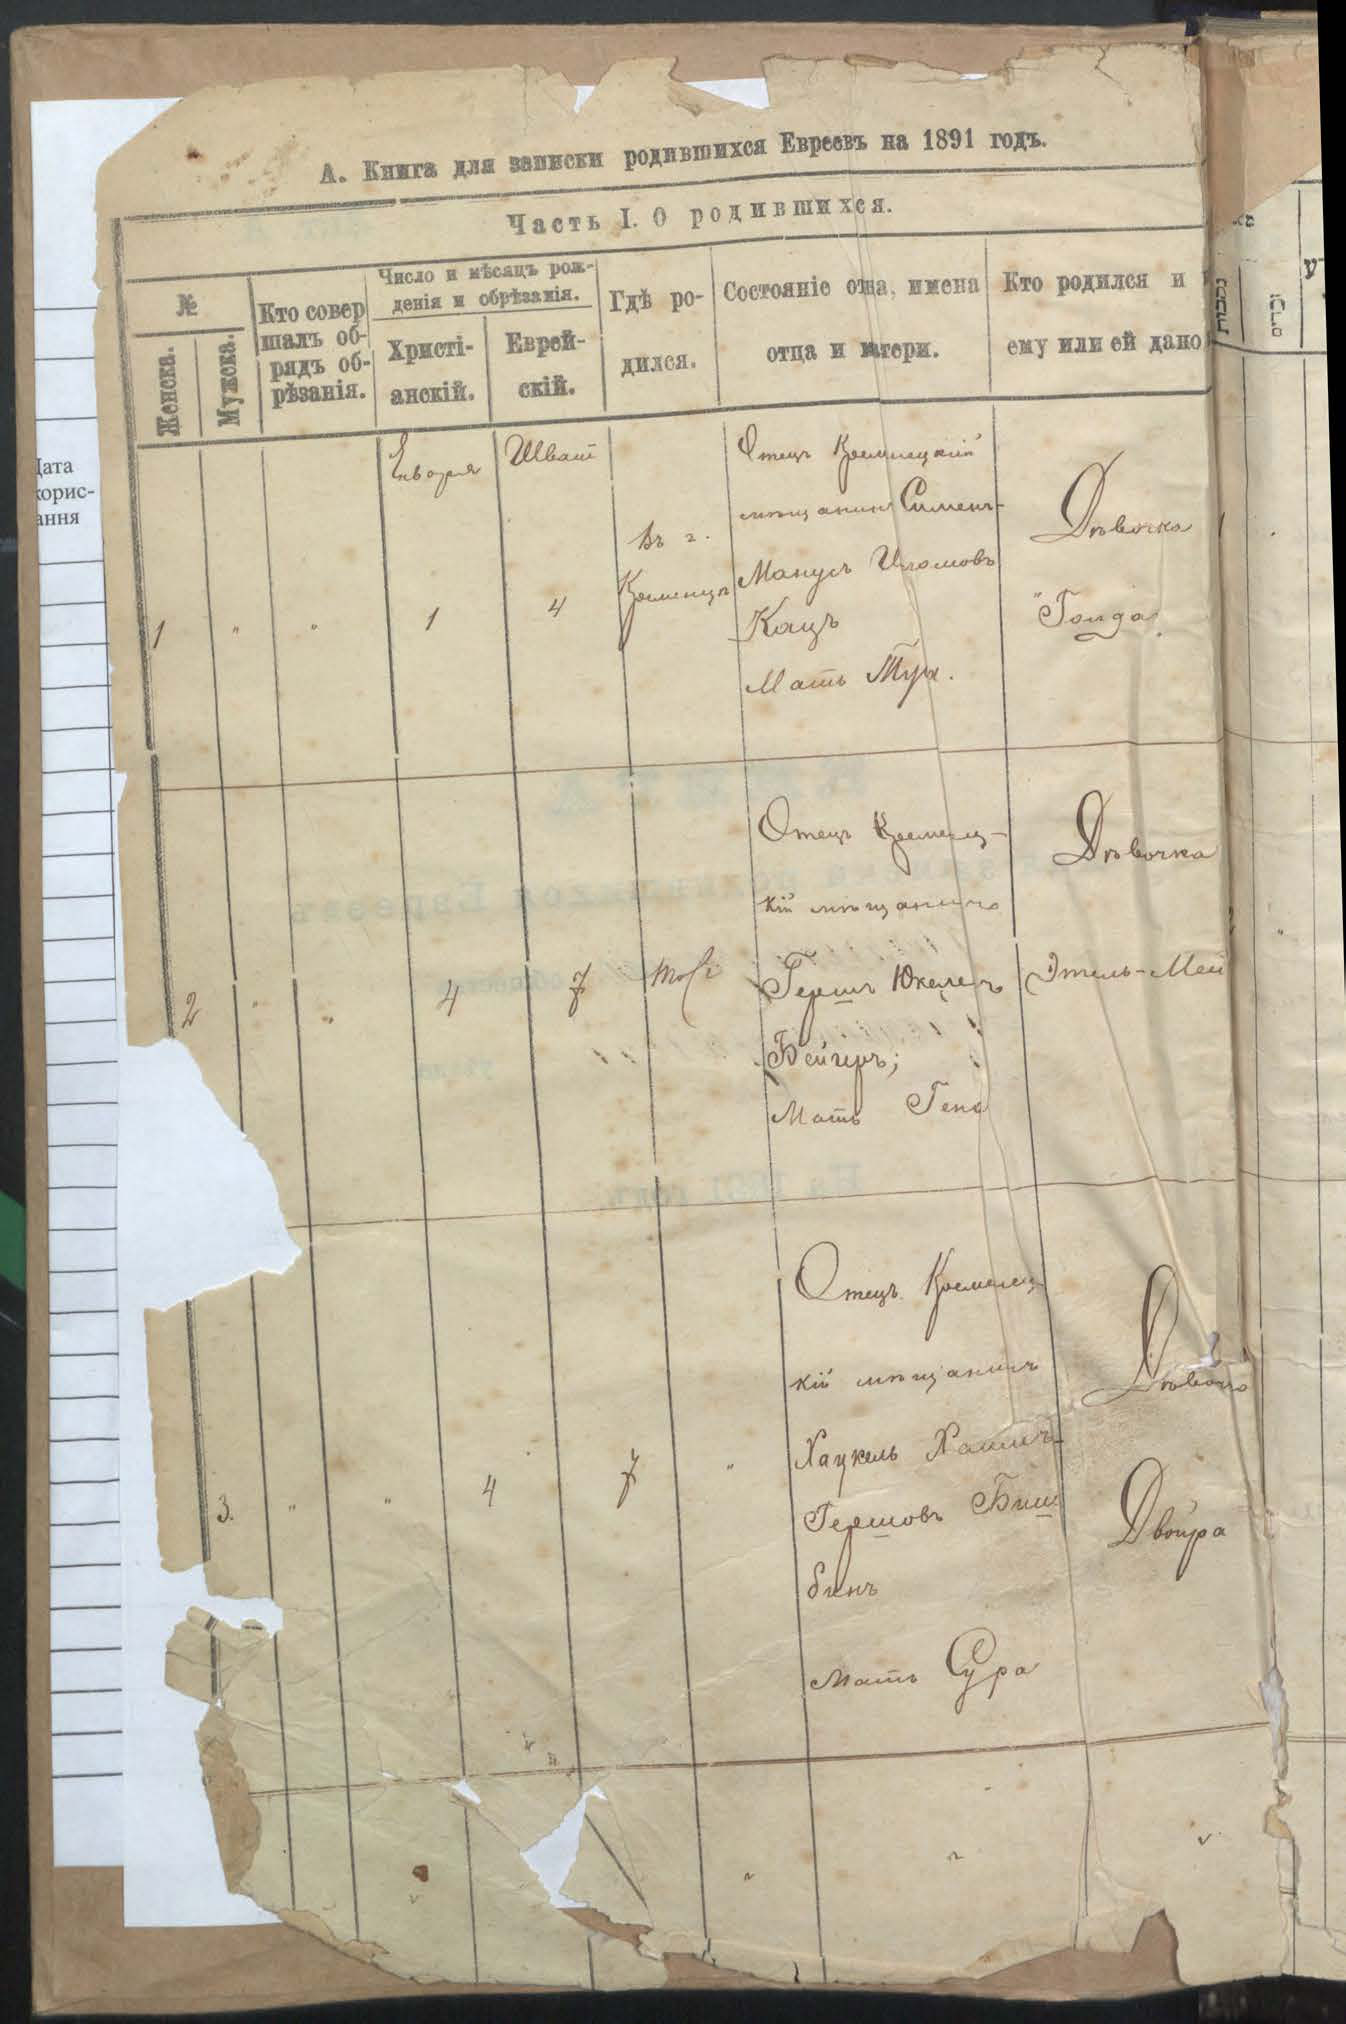 Дата
корис-
ання
А. Книга для записки родившихся Евреевъ на 1891 годъ.
Часть I. О родившихся.
№
Женска.
Мужска.
Кто совер
шалъ об-
рядъ об-
рѣзанія.
Число и мѣсяцъ рож-
денія и обрѣзанія.
Христі-
анскій.
Еврей-
скій.
Гдѣ ро-
дился.
Состояніе отца, имена
отца и матери.
Кто родился и
ему или ей дано
Января
Шват
1 " " 1 4
Въ г.
Кременцѣ
Отецъ Кременецкій
мѣщанинъ
Манусъ
Кацъ
Мать
Дѣвочка
"Голда
2 " " 4 7
Отецъ Кременец-
кій мѣщанинъ
Гершъ
Бейгеръ;
Мать Гена
Дѣвочка
Этель-
3. " " 4 7 "
Отецъ Кременец-
кій мѣщанинъ
Хаимъ-
Гершовъ Биш
бинъ
Мать Сура
Дѣвочка
Двойра